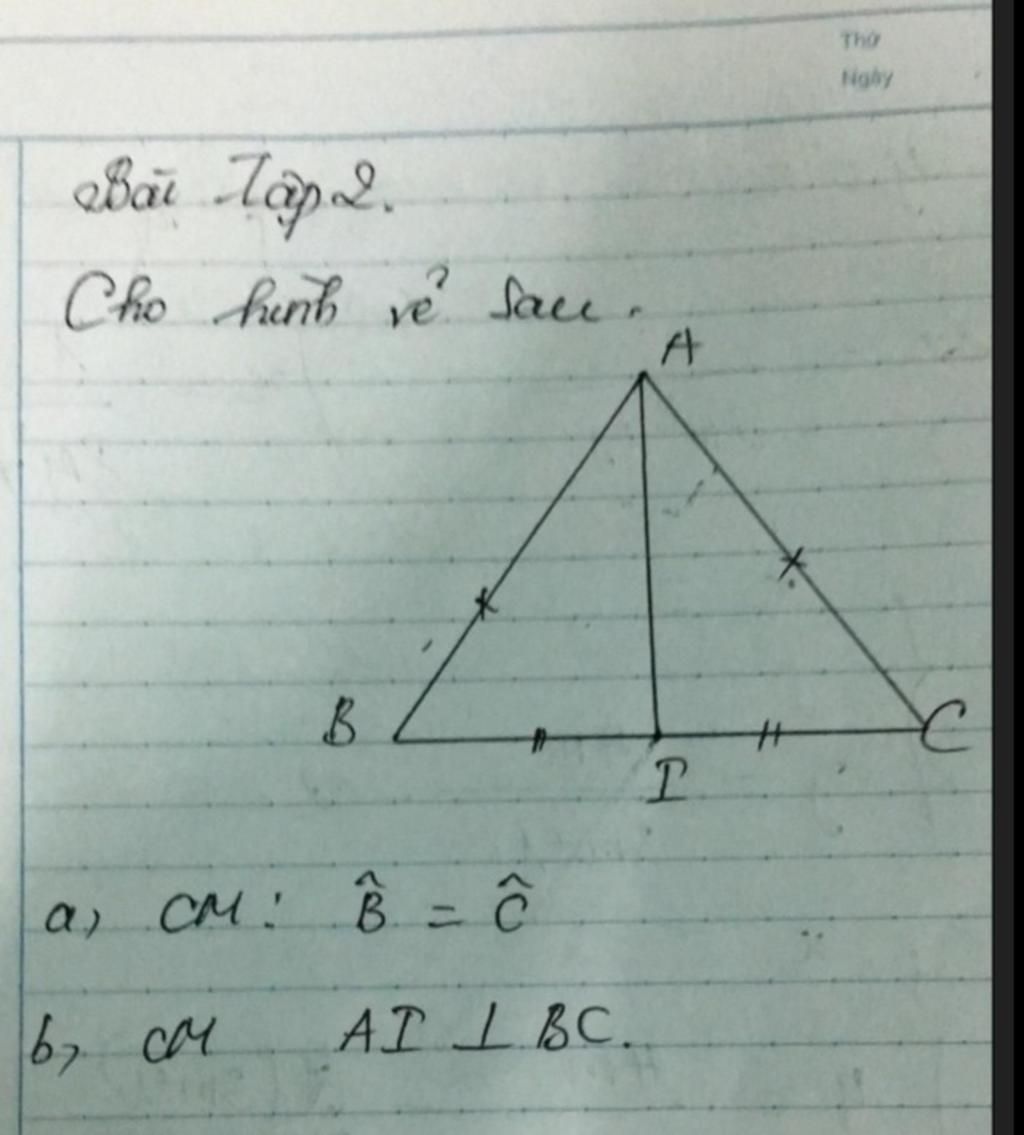 Thứ
Ngày
Bài Tập 2.
Cho hình vẽ sau.
A
B
C
I
a) CM: B̂ = Ĉ
b) CM AI ⊥ BC.